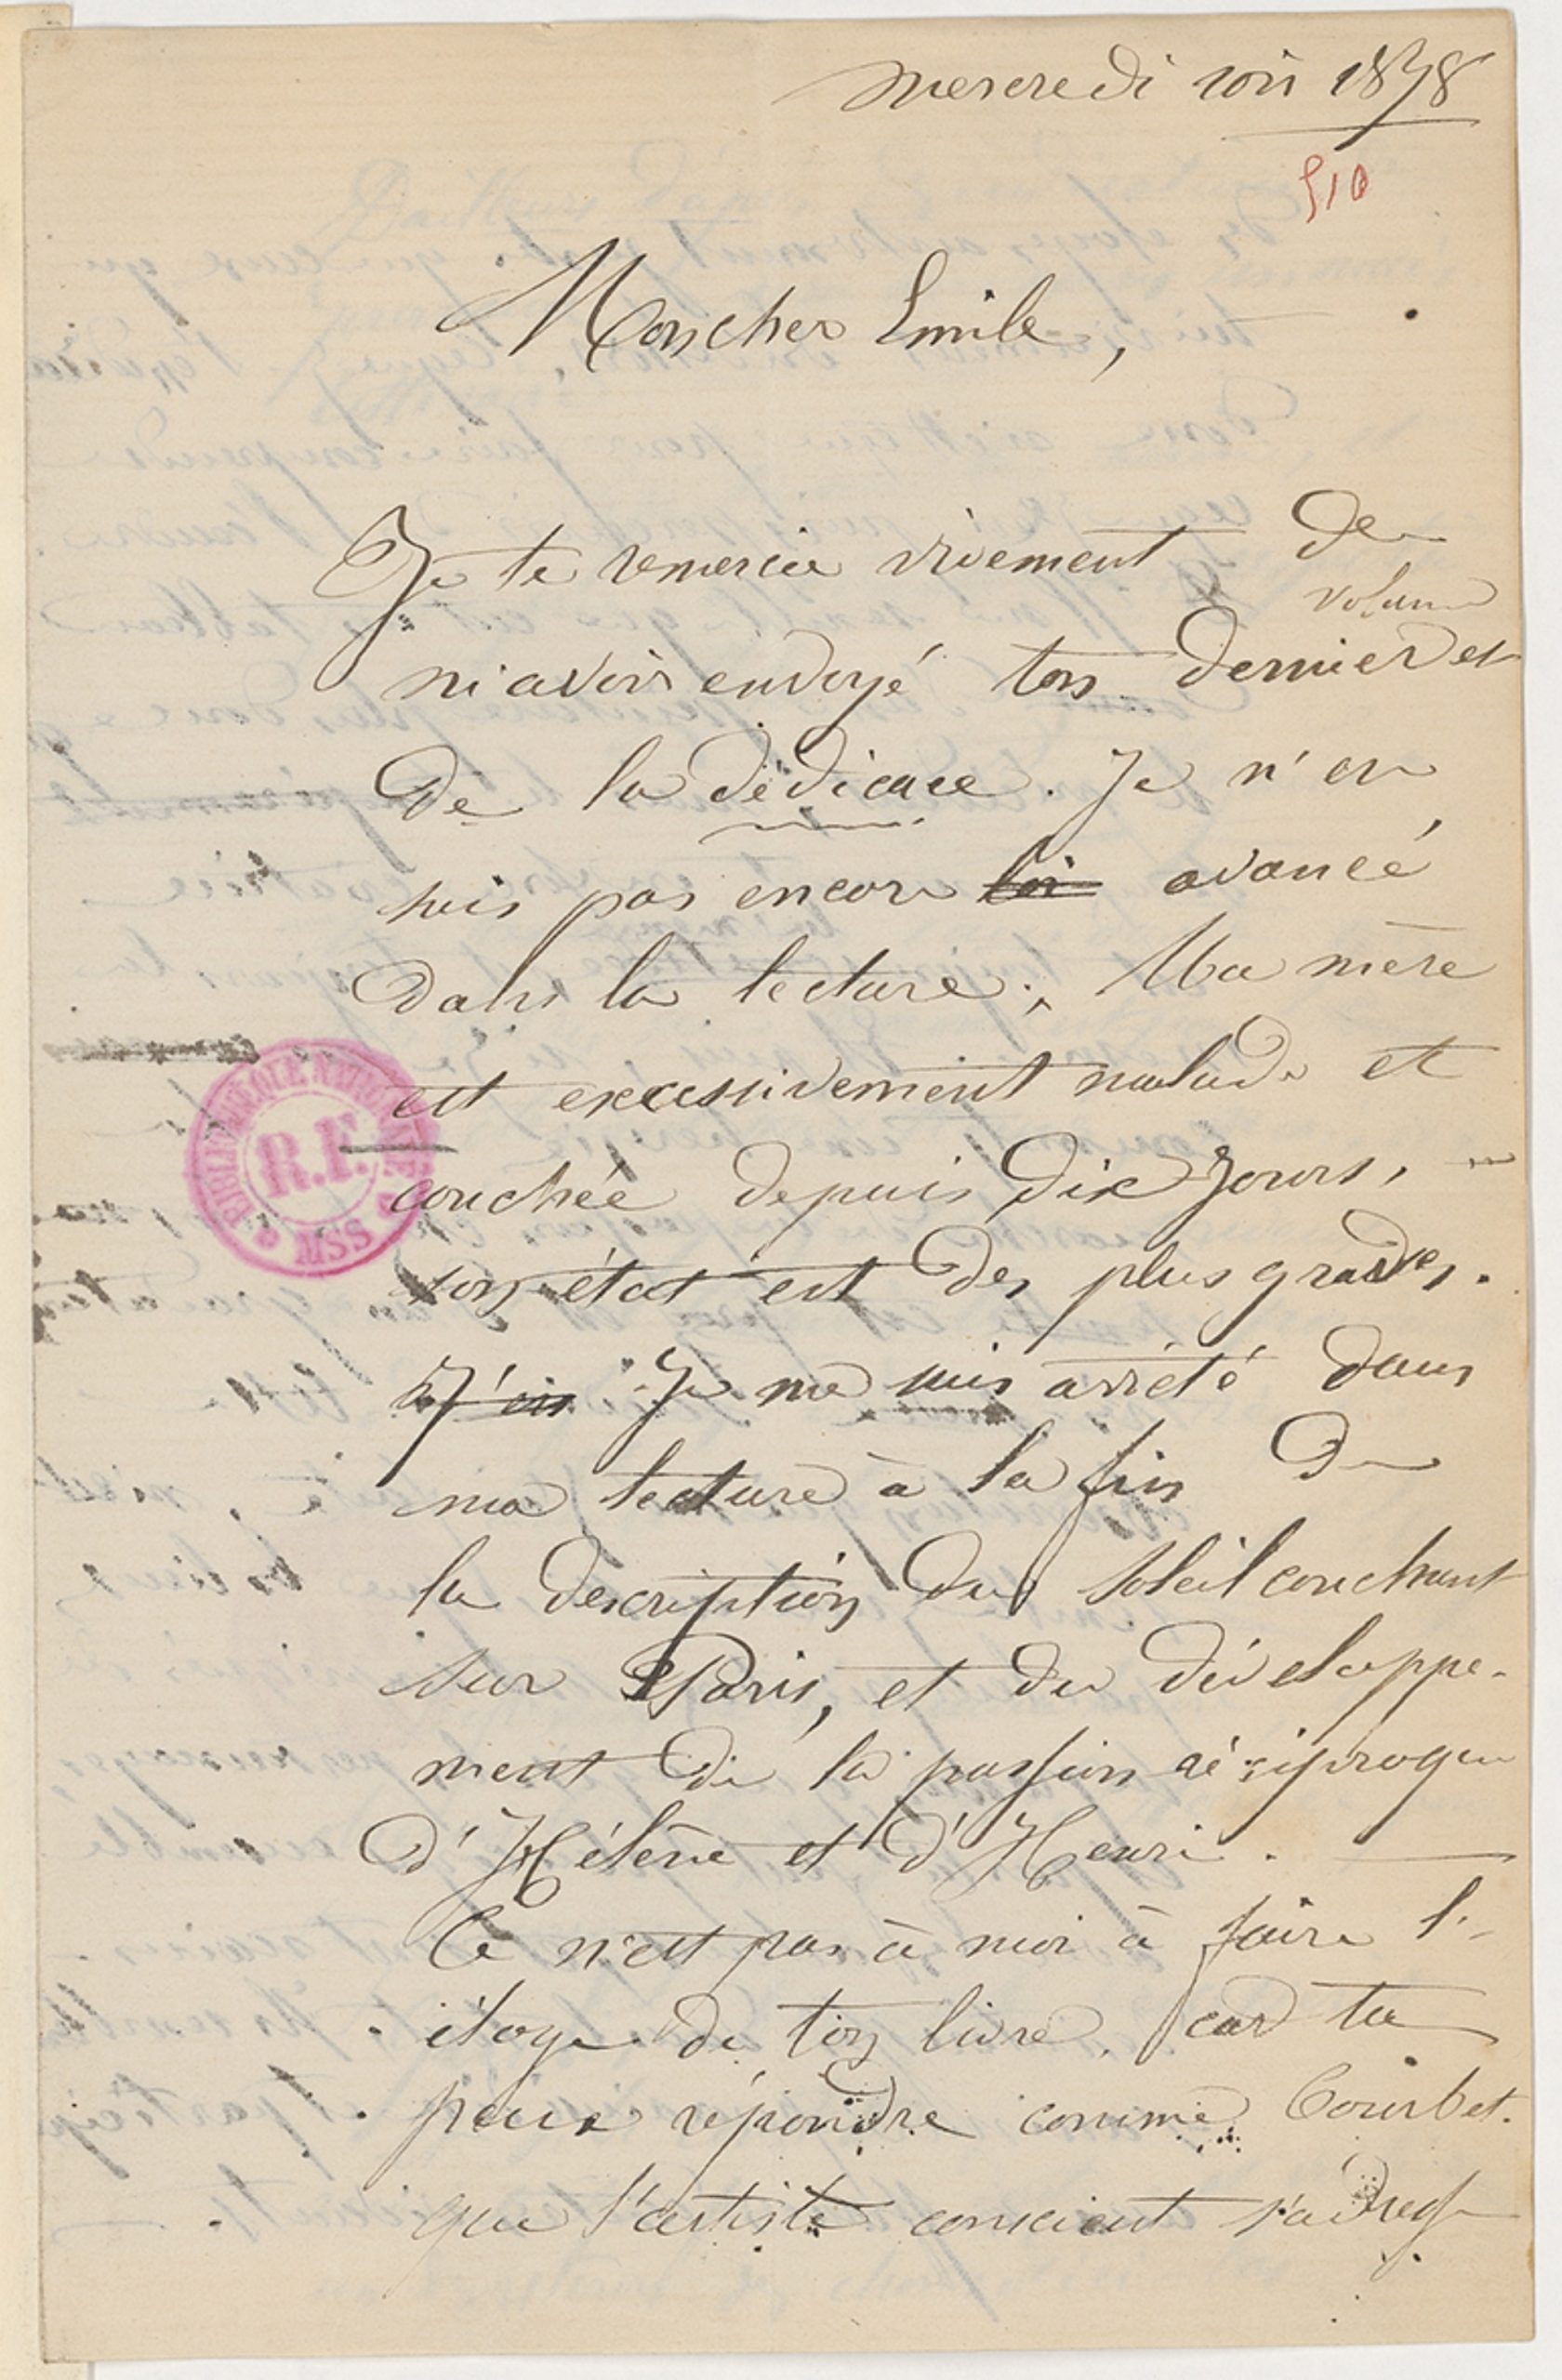 mercredi soir 1878
510
Mon cher Emile,
Je te remercie vivement de
volume
m'avoir envoyé ton dernier et
de la dédicace. Je n'en
suis pas encore loi avancé
dans la lecture. Ma mère
est excessivement malade et
couchée depuis dix jours,
son état est des plus graves.
Je me suis arrêté dans
ma lecture à la fin de
la description du soleil couchant
sur Paris, et du développe-
ment de la passion réciproque
d'Hélène et d'Henri.
Ce n'est pas à moi à faire l'
éloge de ton livre, car tu
peux répondre comme Courbet.
que l'artiste conscient s'adresse
BIBLIOTHÈQUE NATIONALE
R.F.
MSS